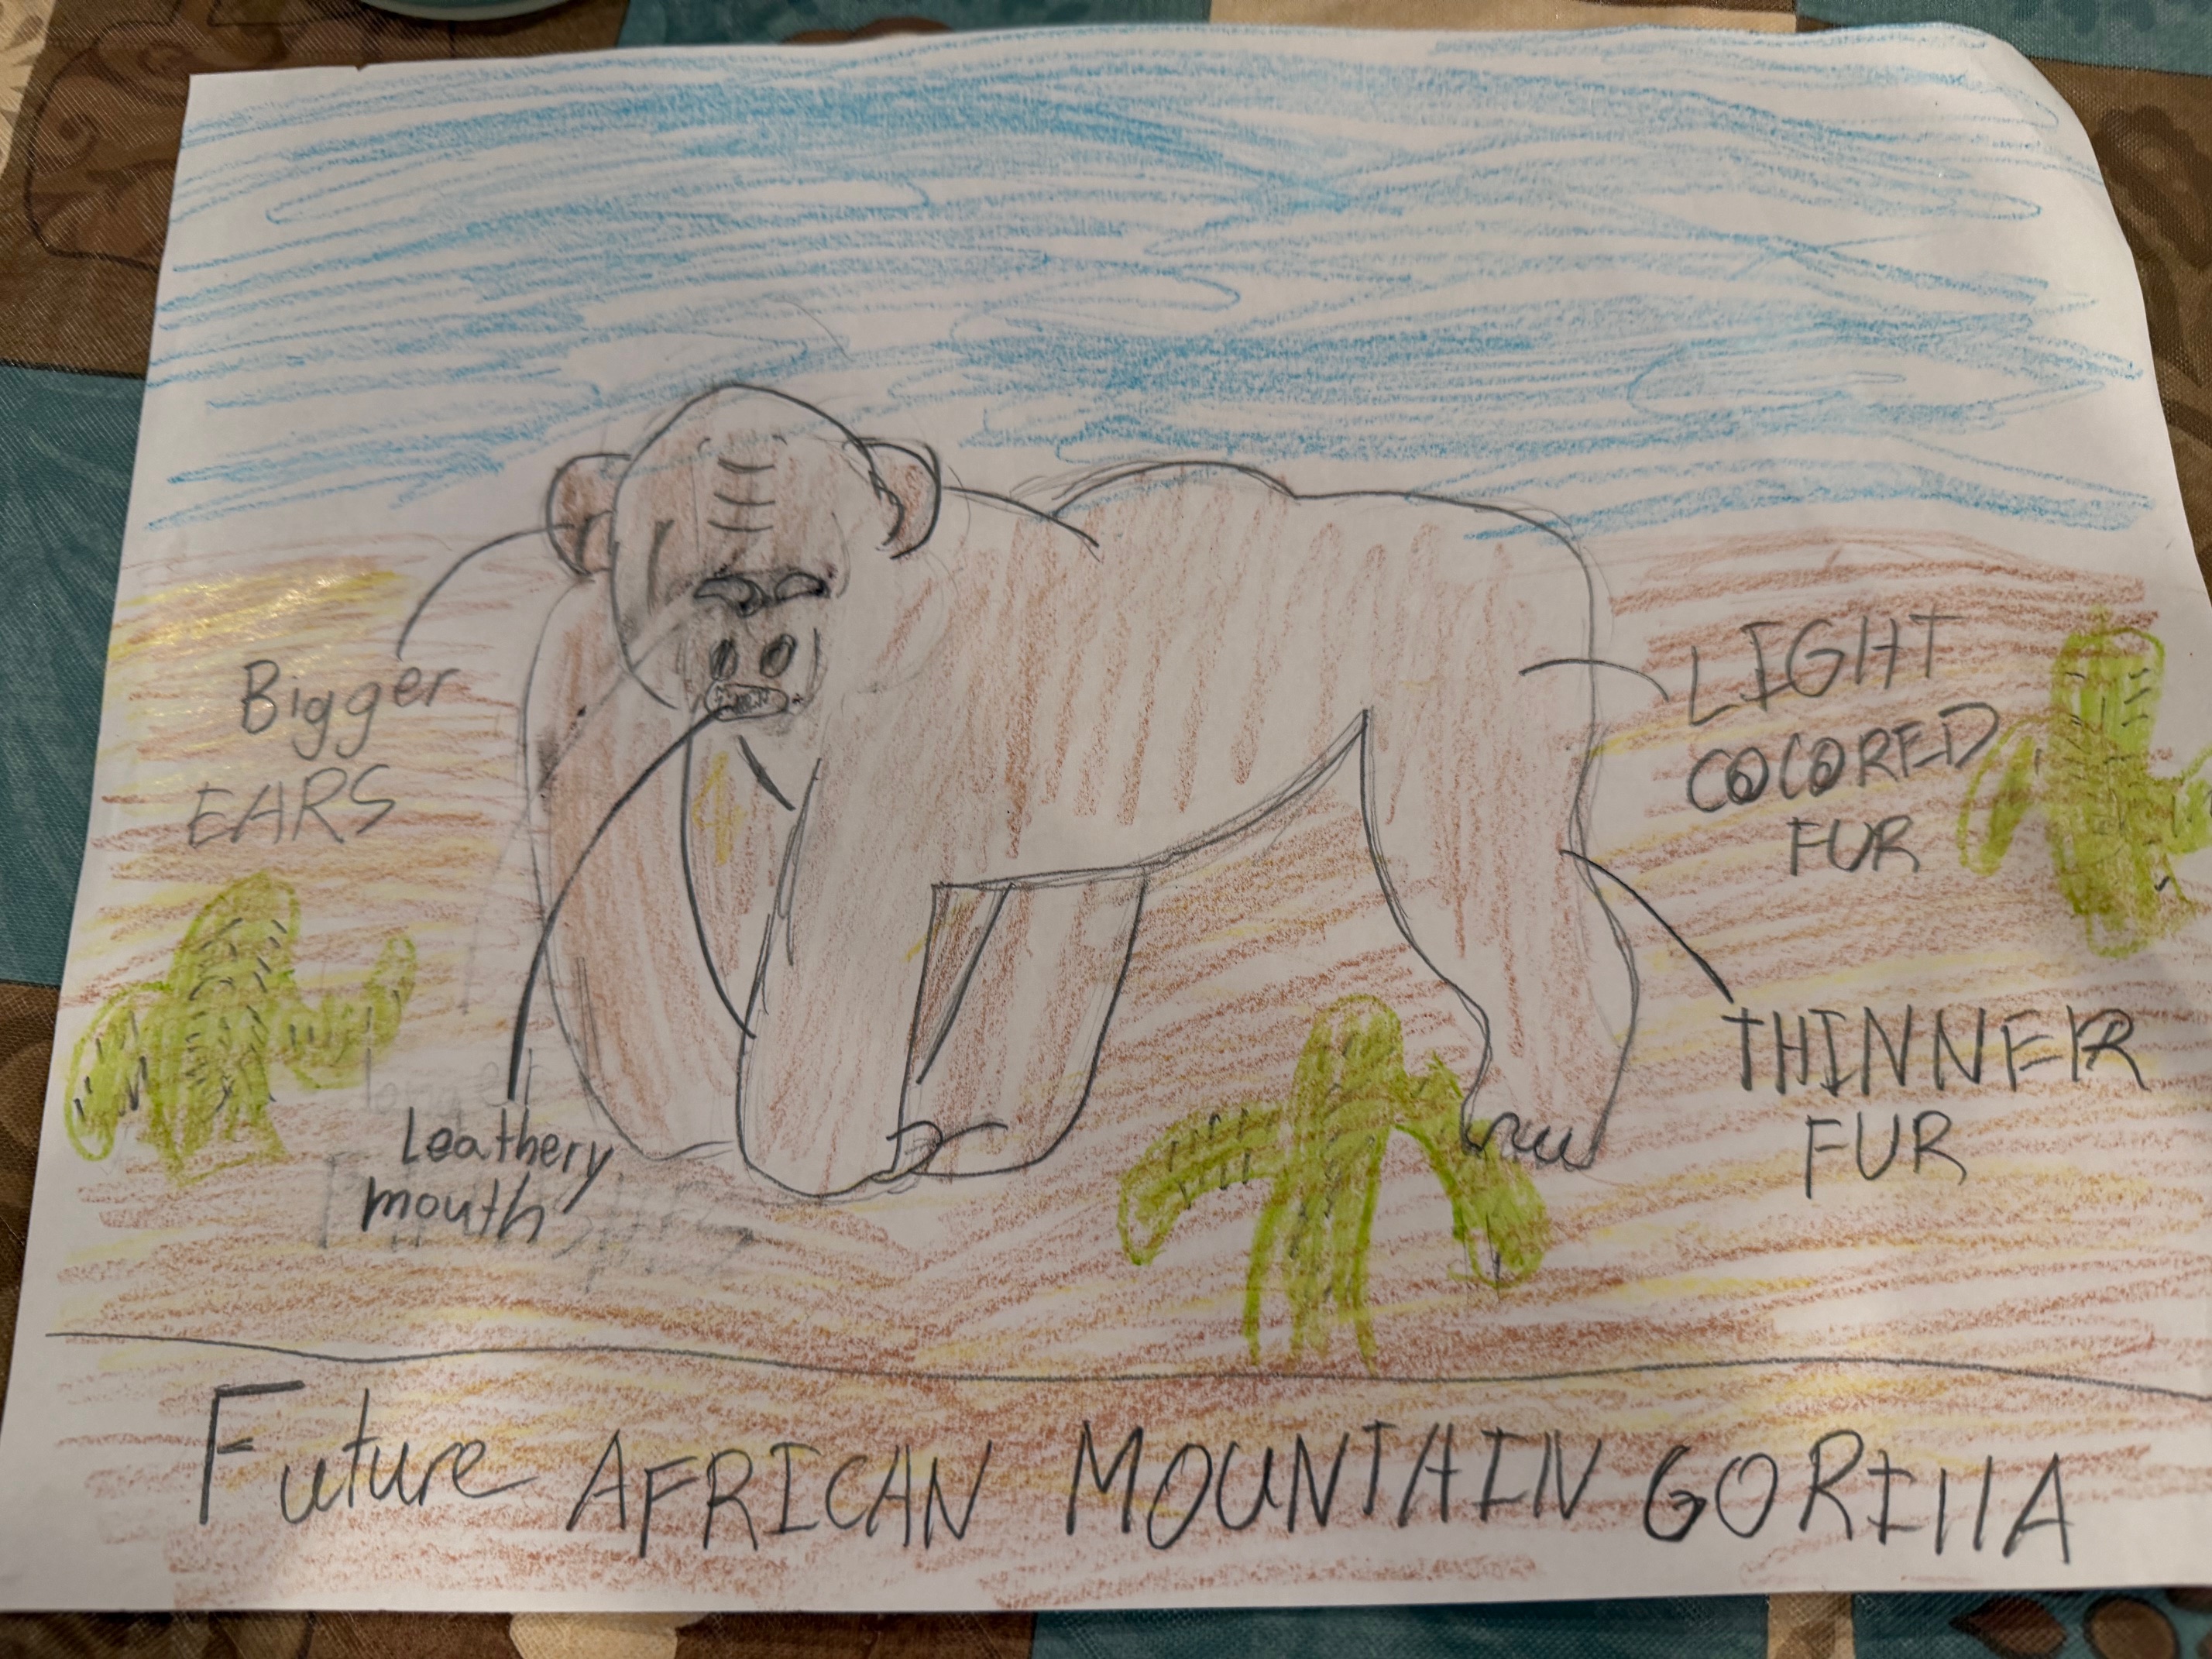 Bigger
EARS
LIGHT
COLORED
FUR
Leathery
mouth
THINNER
FUR
Future AFRICAN MOUNTAIN GORIllA